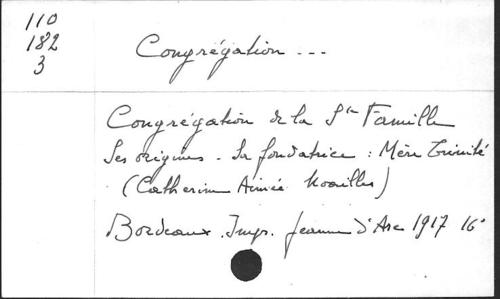 110
182
3
Congrégation ...
Congrégation de la Ste Famille
Ses origines - Sa fondatrice : Mère Trinité
(Catherine Aimée Noailles)
Bordeaux. Impr. Jeanne d'Arc 1917 16°